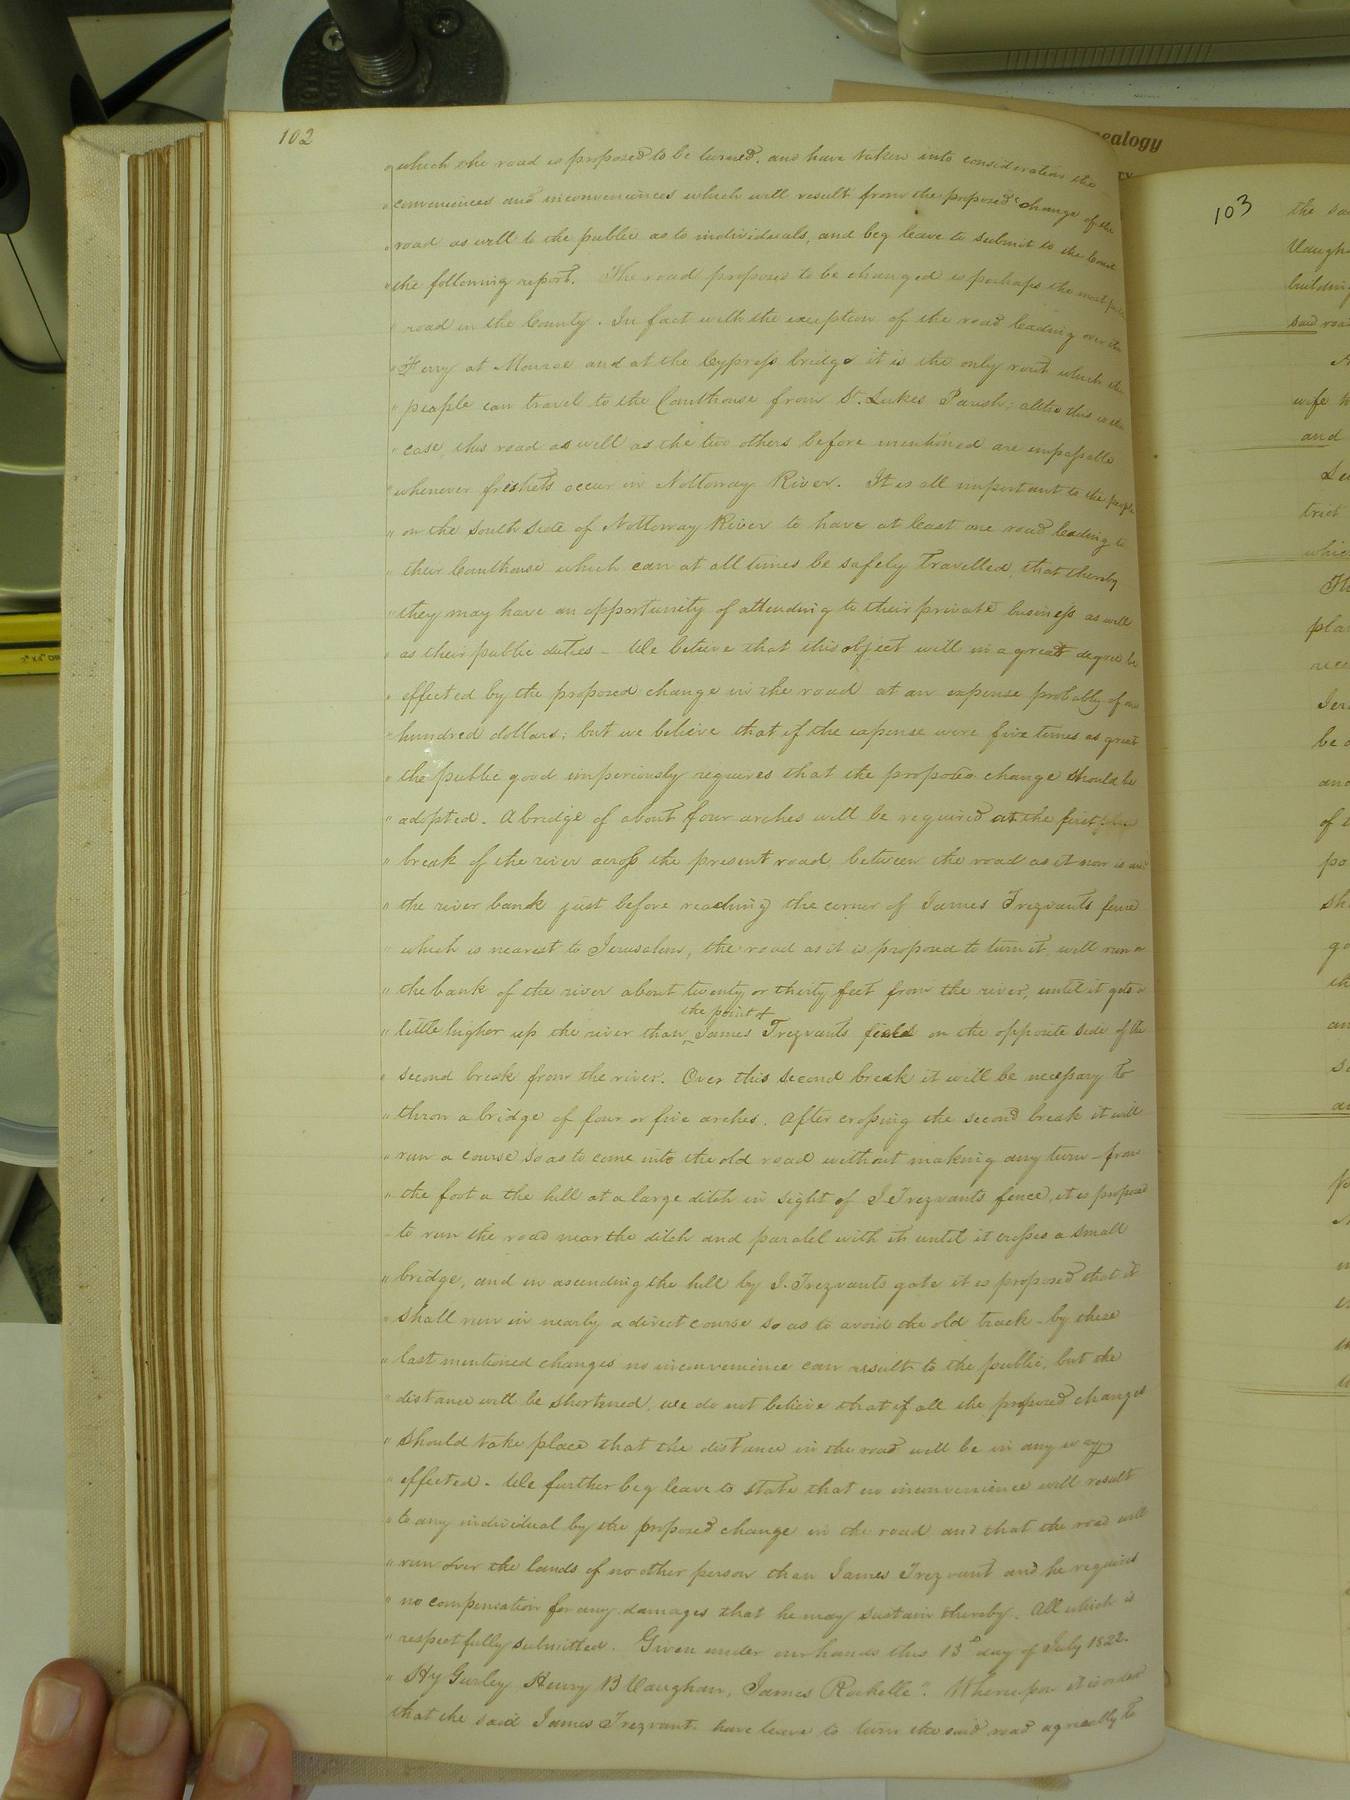 102
" which the road is proposed to be turned, and have taken into consideration the
" conveniences and inconveniences which will result from the proposed change of the
" road as well to the public as to individuals, and beg leave to submit to the Court
" the following report. The road proposed to be changed is perhaps the most
" road in the County. In fact with the exception of the road leading over the
" Ferry at Monroe and at the Cypress bridge it is the only rout which the
" people can travel to the Courthouse from St. Lukes Parish; altho this is the
" case, this road as well as the two others before mentioned are impassable
" whenever freshets occur in Nottoway River. It is all important to the people
" on the South Side of Nottoway River to have at least one road leading to
" their Courthouse which can at all times be safely Travelled, that thereby
" they may have an opportunity of attending to their private business as well
" as their public duties - We believe that this object will in a great degree be
" effected by the proposed change in the road at an expense probably of one
" hundred dollars; but we believe that if the expense were five times as great
" the public good imperiously requires that the proposed change should be
" adopted. A bridge of about four arches will be required at the first
" break of the river across the present road, between the road as it now is and
" the river bank just before reaching the corner of James Trezvants fence
" which is nearest to Jerusalem, the road as it is proposed to turn it, will run on
" the bank of the river about twenty or thirty feet from the river, until it gets a
the point of
" little higher up the river than James Trezvants field on the opposite side of the
" second break from the river. Over this second break it will be necessary to
" throw a bridge of four or five arches. After crossing the second break it will
" run a course so as to come into the old road without making any turn - from
" the foot a the hill at a large ditch in sight of J. Trezvants fence, it is proposed
" to run the road near the ditch and paralel with it until it crosses a small
" bridge, and in ascending the hill by J. Trezvants gate it is proposed that it
" shall run in nearly a direct course so as to avoid the old track - by these
" last mentioned changes no inconvenience can result to the public, but the
" distance will be shortened, we do not believe that if all the proposed changes
" should take place that the distance in the road will be in any way
" effected - We further beg leave to state that no inconvenience will result
" to any individual by the proposed change in the road and that the road will
" run over the lands of no other person than James Trezvant and he requires
" no compensation for any damages that he may sustain thereby. All which is
" respectfully submitted. Given under our hands this 13th day of July 1822.
" Hy Gurley Henry B Vaughan, James Rochelle". Whereupon it is ordered
that the said James Trezvant have leave to turn the said road agreeably to
ealogy
103
the
building
said
wife
and